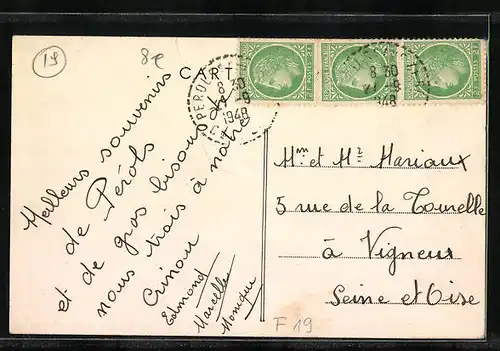 19
8e
CART
PEROLS
8 30
1948
8 30
1948
Meilleurs souvenirs
de Pérols
et de gros bisous de
nous trois à notre
Edmond
Marcelle
Monique
Mme et Mr Mariaux
5 rue de la Tourelle
à Vigneux
Seine et Oise
F 19